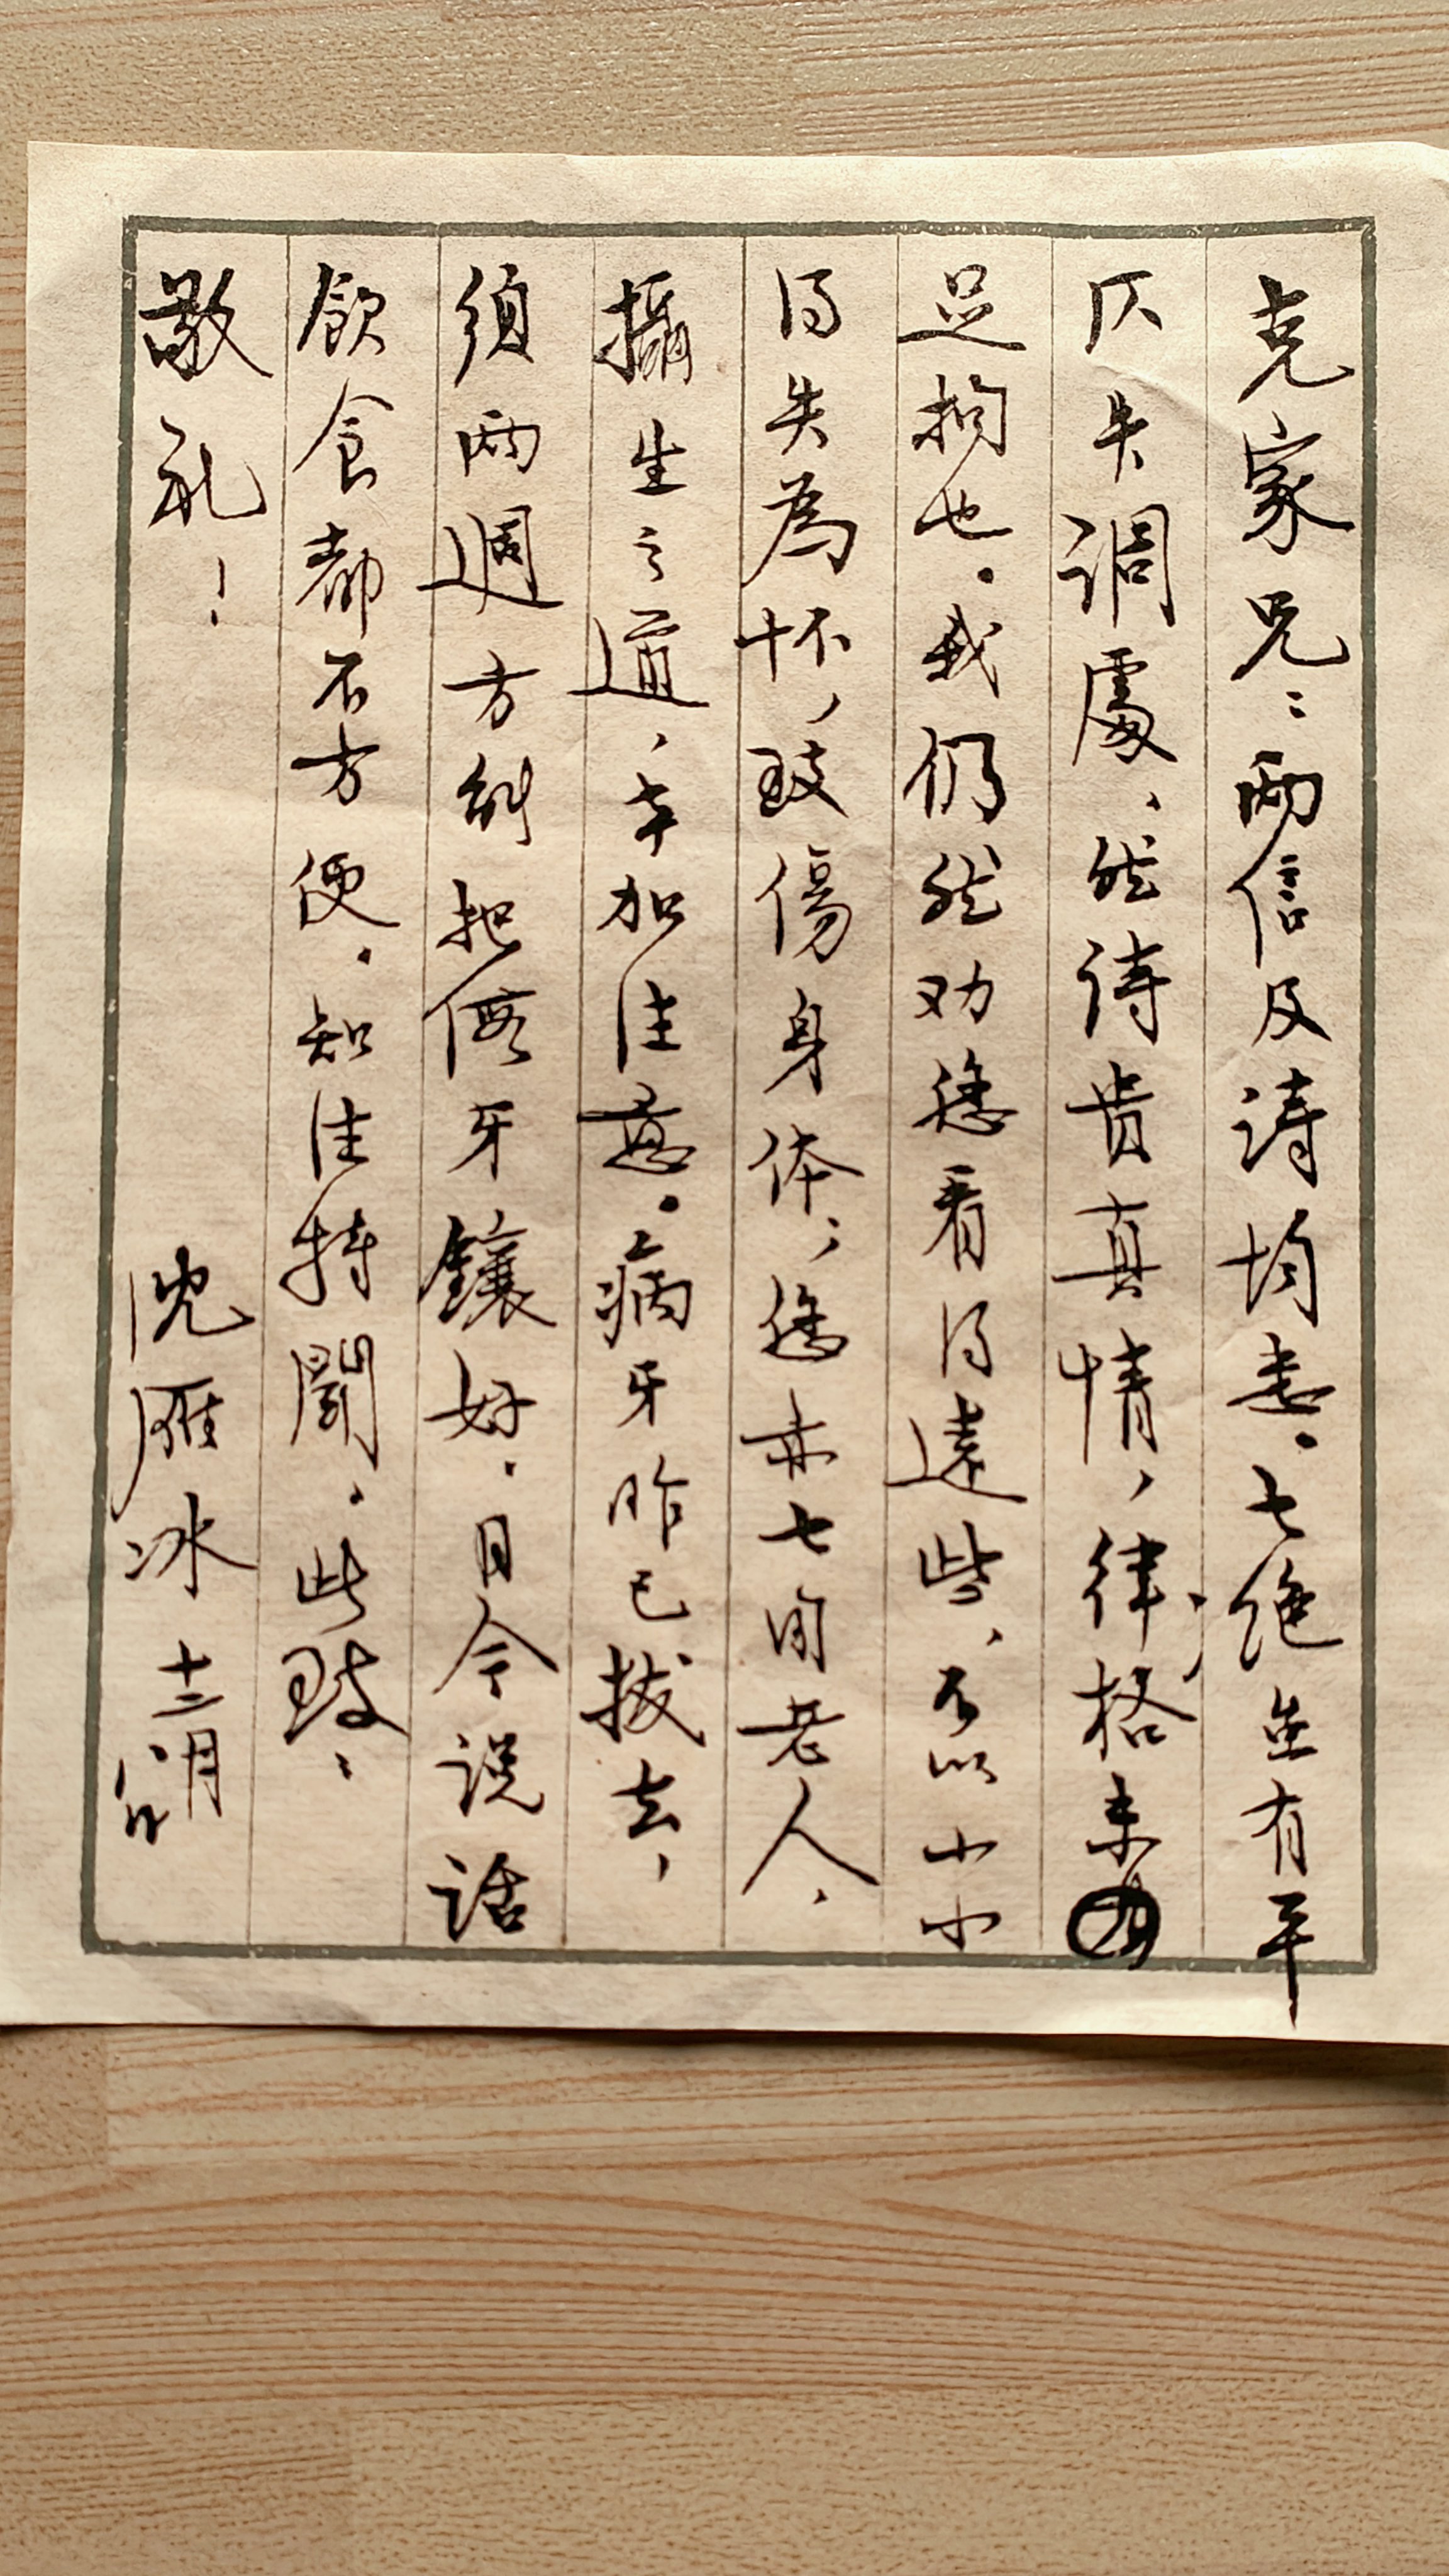 克家兄：两信及诗均悉。七绝虽有平
仄失调處，然诗贵真情，律、格未
足拘也。我仍然劝您看得遠些，不以小小
得失為怀，致傷身体；您亦七旬老人，
攝生之道，幸加注意。病牙昨已拔去，
須两週方能把假牙鑲好。目今说话
飲食都不方便。知注特聞。此致：
敬礼！
沈雁冰 十二月